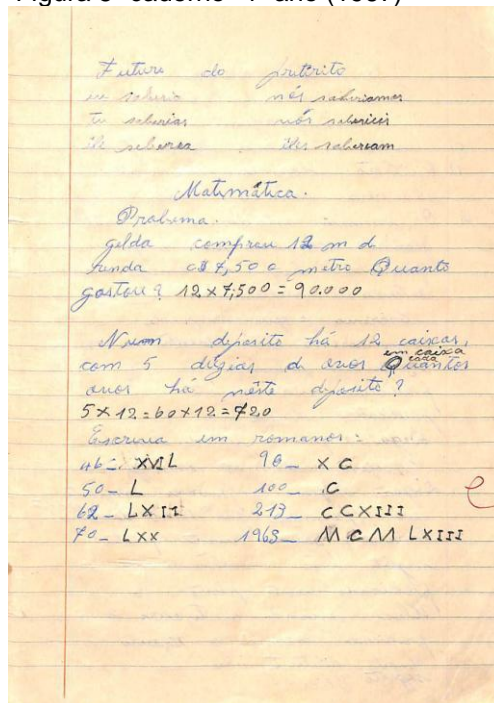 Futuro do pretérito
eu saberia nós saberiamos
tu saberias vós saberieis
êle saberia êles saberiam
Matemática.
Problema.
gilda comprou 12 m d.
renda c$ 7,50 o metro Quanto
gastou? 12 x 7,500 = 90.000
Num deposito há 12 caixas,
com 5 dúzias d ovos em caixa cada Quantos
ovos há nêste deposito?
5 x 12 = 60 x 12 = 720
Escreva em romanos:
46 - XVIL 90 - XC
50 - L 100 - C
62 - LXII 213 - CCXIII
70 - LXX 1963 - MCMLXIII